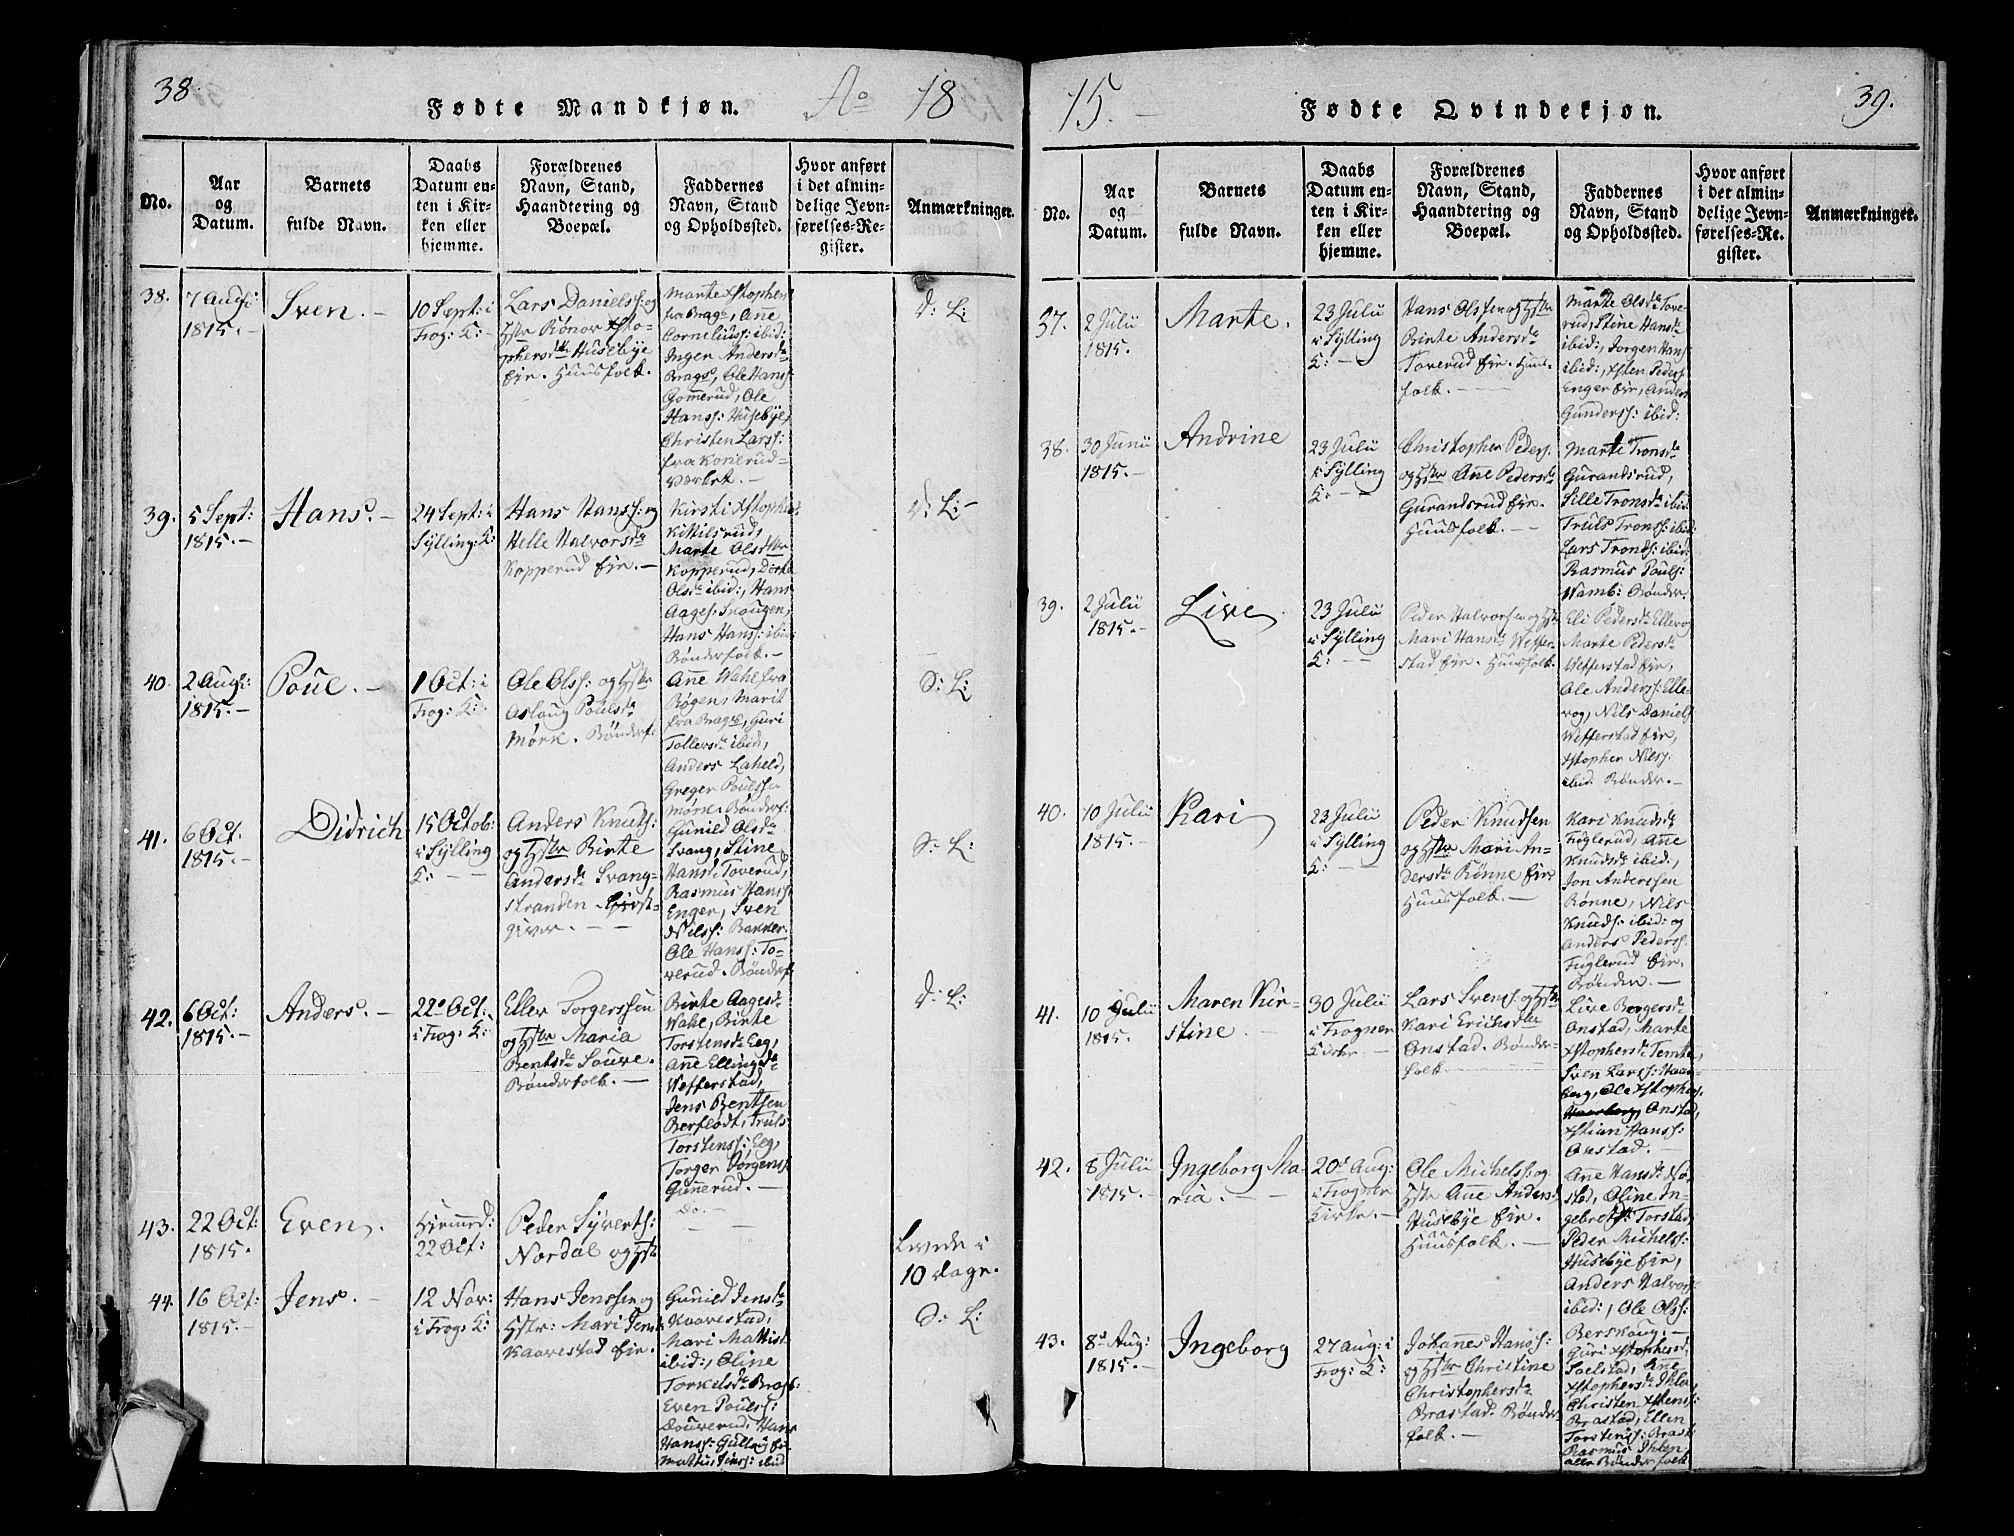 38.
Fødte Mandkjøn.
Ao 18
No.
Aar
og
Datum.
Barnets
fulde Navn.
Daabs
Datum en-
ten i Kir-
ken eller
hjemme.
Forældrenes
Navn, Stand,
Haandtering og
Boepæl.
Faddernes
Navn, Stand
og Opholdssted.
Hvor anført
i det almin-
delige Jevn-
førelses-Re-
gister.
Anmærkninger.
38.
7 Augs:
1815.-
Sven.-
10 Sept: i
Frog: K:
Lars Danielss: og
Hstr Rønor Xsto-
phersdtr Husebye
Eir. Huusfolk.
Marte Xstophers
fra Brags, Ane
Corneliuss: ibid:
Inger Andersdr
Brags, Ole Hans
Gomerud, Ole
Hanss: Husebye,
Christen Larss:
fra Konerud-
værket.-
D: L:
39.
5 Sept:
1815.-
Hans.-
24 Sept: i
Sylling K:
Hans Hanss: og
Helle Halvorsdr
Kopperud Eir.-
Kirsti Xstophers
Kittilsrud,
Marte Olsdtr
Kopperud, Dorte
Olsdr ibid:, Hans
Aages: Skougen,
Hans Hanss: ibid:
Bønderfolk.-
D: L:-
40.
2 Augs:
1815.-
Poul.-
1 Oct: i
Frog: K:
Ole Olss: og Hstr
Aslaug Poulsdr
Mørk. Bønderf:
Ane Wahl fra
Røgen, Marit
fra Brags, Guri
Tollersdr ibid,
Anders Laheld,
Greger Poulssen
Mørk. Bønderf:
S: L:
41.
6 Oct:
1815.-
Didrich
15 Octob:
i Sylling
K: - -
Anders Knuts:
og Hstr Birte
Andersdr Svang-
stranden. Giest-
giver. - -
Gunild Olsdr
Svang, Stine
Hansdr Toverud,
Rasmus Hans
Enger, Sven
Nilss: Bakker
Ole Hanss: To-
verud. Bønderf
S: L:
42.
6 Oct:
1815.-
Anders.-
22 Oct:
i Frog: K:
Ellev Torgerssen
og Hstr Maria
Bentsdr Souve.
Bønderfolk.-
Birte Aagesdr
Wahe, Birte
Torstensdr Eeg,
Ane Ellingsdr
Wefferstad,
Jens Bentsen
Berflodt, Truls
Torstenss: Eeg,
Torger Jørgens
Gunerud.-
D: L:
43.
22 Oct:
1815.
Even.
Hjemmed:
22 Oct:
Peder Syverts:
Nordal og Hstr
Do.-
Levede i
10 dage.
44.
16 Oct:
1815.-
Jens.-
12 Nov:
i Frog: K:
Hans Jenssen og
Hstr: Mari Jens
Kaarestad Eir.
Gunild Jensdr
Kaarestad,
Mari Mattis
ibid:, Oline
Torkelsdr Brags:
Even Pouls:
Douverud, Hans
Hanss: Gullaug Eir
Mattis Jenss: ibid
S: L:
15.-
Fødte Qvindekjøn.
39.
No.
Aar
og
Datum.
Barnets
fulde Navn.
Daabs
Datum en-
ten i Kir-
ken eller
hjemme.
Forældrenes
Navn, Stand,
Haandtering og
Boepæl.
Faddernes
Navn, Stand
og Opholdssted.
Hvor anført
i det almin-
delige Jevn-
førelses-Re-
gister.
Anmærkninger.
37.
2 Julii
1815.
Marte.
23 Julii
i Sylling
K: -
Hans Olssen og Hstr
Birte Andersdr
Toverud Eir. Huus-
folk.-
Marte Olsdr Tove-
rud, Stine Hansdr
ibid:, Jørgen Hans
ibid:, Xsten Peders
Enger Eir, Anders
Gunderss: ibid:
38.
30 Junii
1815.-
Andrine
23 Julii
i Sylling
K: -
Christopher Peders:
og Hstr Ane Pedersdr
Gurandsrud Eir.
Huusfolk.-
Marte Tronsdr
Gurandsrud,
Sille Tronsdr ibid
Truls Tronss: ibid:
Lars Tronds: ibid:
Rasmus Pouls:
Wamb: Bønder.
39.
2 Julii
1815.-
Live
23 Julii
i Sylling
K: -
Peder Halvorsen og Hstr
Mari Hansdr Weffer-
stad Eir. Huusfolk.
Eli Pedersdr Ellevog
Marte Pedersdr
Wefferstad Eir,
Ole Anderss: Elle-
vog, Nils Daniels
Wefferstad Eir,
Xstopher Nilss:
ibid: Bønder.-
40.
10 Julii
1815.-
Kari
23 Julii
i Sylling
K: -
Peder Knudsen
og Hstr Mari An-
dersdr Rønne Eir
Huusfolk.-
Kari Knudsdr
Fuglerud, Ane
Knudsdr ibid:,
Jon Anderssen
Rønne, Nils
Knuds: ibid: og
Anders Peders
Fuglerud Eir.
Bønder.-
41.
10 Julii
1815.-
Maren Kir-
stine.-
30 Julii
i Frogner
Kirke.-
Lars Svens: og Hstr
Kari Erichsdtr
Onstad. Bønder-
folk.-
Live Borgersdr
Onstad, Marte
Xstophersdr Temte,
Sven Larss: Haar-
berg, Ole Xstophers.
Onstad,
Xstian Hanss:
Onstad.-
42.
8 Julii
1815.-
Ingeborg Ma-
ria.-
20 Aug:
i Frogner
Kirke.-
Ole Michelss: og
Hstr Ane Anders
Husebye Eir.
Huusfolk.-
Ane Hansdr Nø-
stad, Oline In-
gebretsdr Torstad,
Peder Michelss:
Husebye Eir,
Anders Halvors
ibid:, Ole Olss:
Berskoug.-
43.
8 Aug:
1815.-
Ingeborg
27 Aug: i
Frog: K:
Johannes Hanss:
og Hstr Christine
Christophersdr
Brastad. Bønder-
folk.-
Guri Xstophersd.
Soelstad, Ane
Xstophersdr Ihlen,
Christen Xstens:
Brastad, Ellen
Torstenss: Brast:
Rasmus Ihlen
alle Bønderfolk